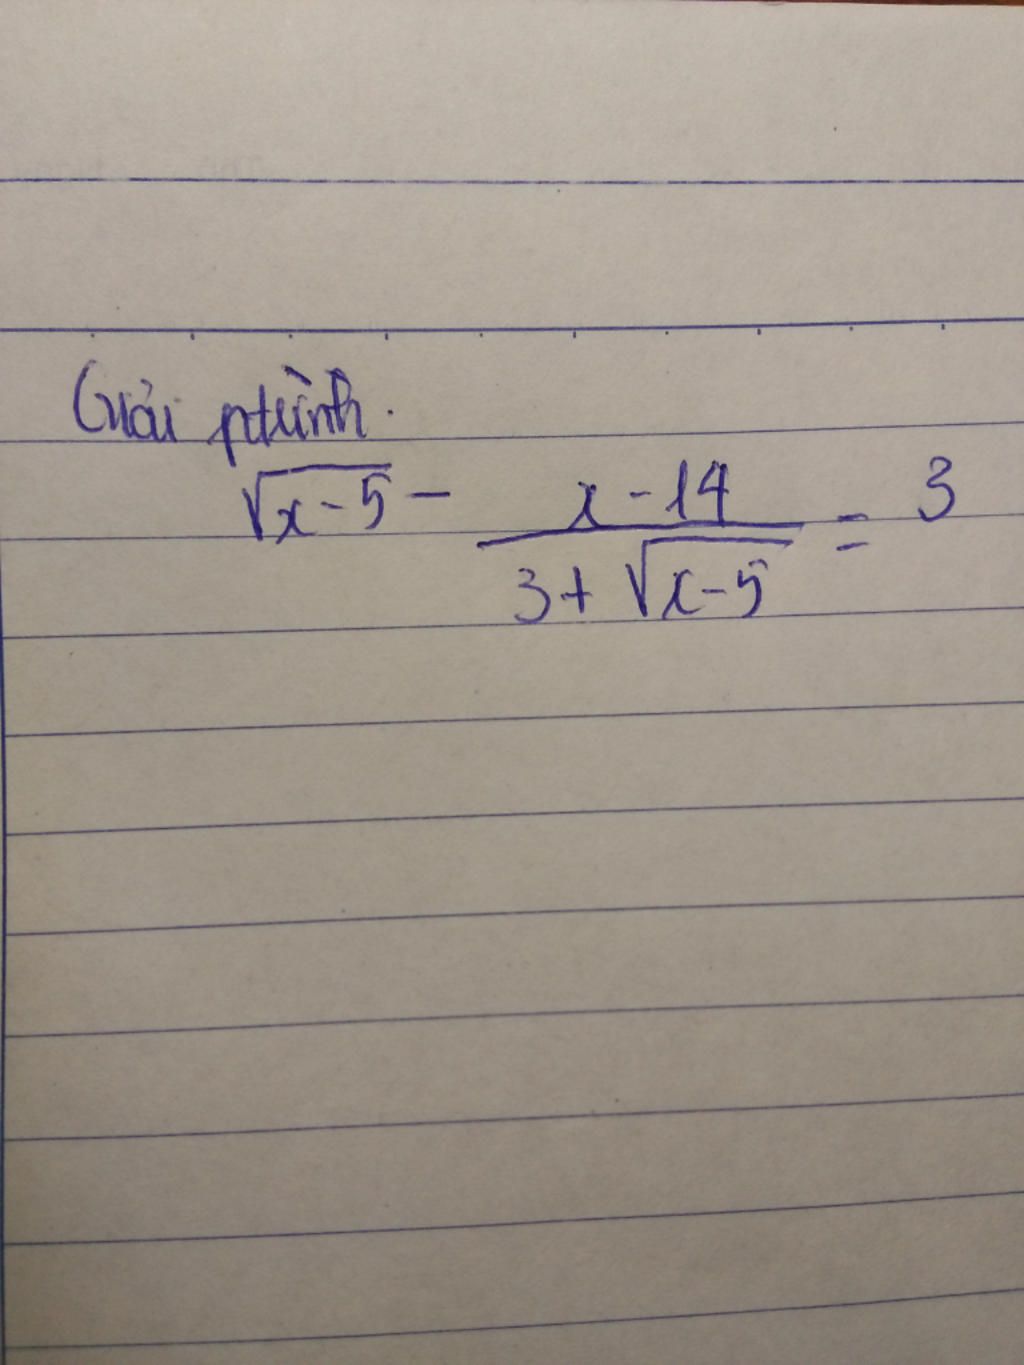 Giải ptrình.
√x-5 - x-14 / 3+√x-5 = 3